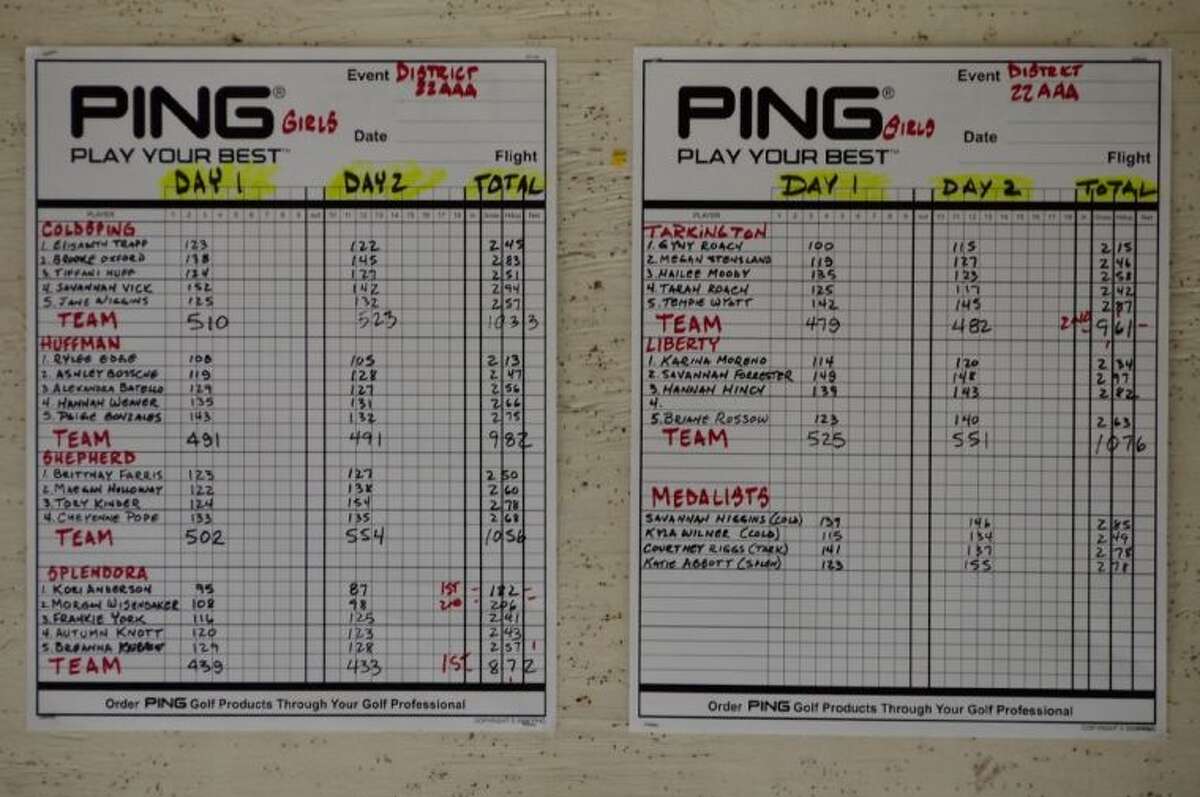 Event DISTRICT
22AAA
PING® GIRLS
Date
PLAY YOUR BEST™
Flight
DAY 1 DAY 2 TOTAL
PLAYER 1 2 3 4 5 6 7 8 9 out 10 11 12 13 14 15 16 17 18 in Gross Hdcp Net
COLDSPING
1. ELISABTH TRAPP 123 122 245
2. BROOKE OXFORD 138 145 283
3. TIFFANI HUFF 124 127 251
4. SAVANNAH VICK 152 142 294
5. JANE WIGGINS 125 132 257
TEAM 510 523 1033
HUFFMAN
1. RYLEE EDGE 108 105 213
2. ASHLEY BOSSCHE 119 128 247
3. ALEXANDRA BATELLO 129 127 256
4. HANNAH WEAVER 135 131 266
5. PAIGE GONZALES 143 132 275
TEAM 491 491 982
SHEPHERD
1. BRITTNAY FARRIS 123 127 250
2. MAEGAN HOLLOWAY 122 138 260
3. TORY KINDER 124 154 278
4. CHEYENNE POPE 133 135 268
TEAM 502 554 1056
SPLENDORA
1. KORI ANDERSON 95 87 1ST - 182 -
2. MORGAN WISENBAKER 108 98 2ND - 206 -
3. FRANKIE YORK 116 125 241
4. AUTUMN KNOTT 120 123 243
5. BREANNA 129 128 257
TEAM 439 433 1ST 872
Order PING Golf Products Through Your Golf Professional
Event DISTRICT
22AAA
PING® GIRLS
Date
PLAY YOUR BEST™
Flight
DAY 1 DAY 2 TOTAL
PLAYER 1 2 3 4 5 6 7 8 9 out 10 11 12 13 14 15 16 17 18 in Gross Hdcp Net
TARKINGTON
1. GYNY ROACH 100 115 215
2. MEGAN STENSLAND 119 127 246
3. HAILEE MOODY 135 123 258
4. TARAH ROACH 125 117 242
5. TEMPIE WYATT 142 145 287
TEAM 479 482 2ND - 961 -
LIBERTY
1. KARINA MORENO 114 120 234
2. SAVANNAH FORRESTER 149 148 297
3. HANNAH HINCH 139 143 282
4.
5. BRIANE ROSSOW 123 140 263
TEAM 525 551 1076
MEDALISTS
SAVANNAH HIGGINS (COLD) 139 146 285
KYLA WILNER (COLD) 115 134 249
COURTNEY RIGGS (TARK) 141 137 278
KATIE ABBOTT (SPLEN) 123 155 278
Order PING Golf Products Through Your Golf Professional